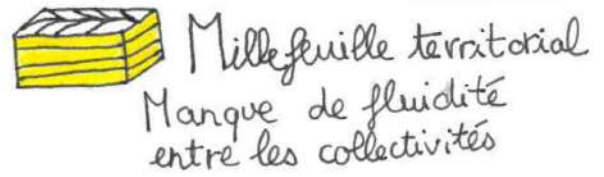 Millefeuille territorial
Manque de fluidité
entre les collectivités